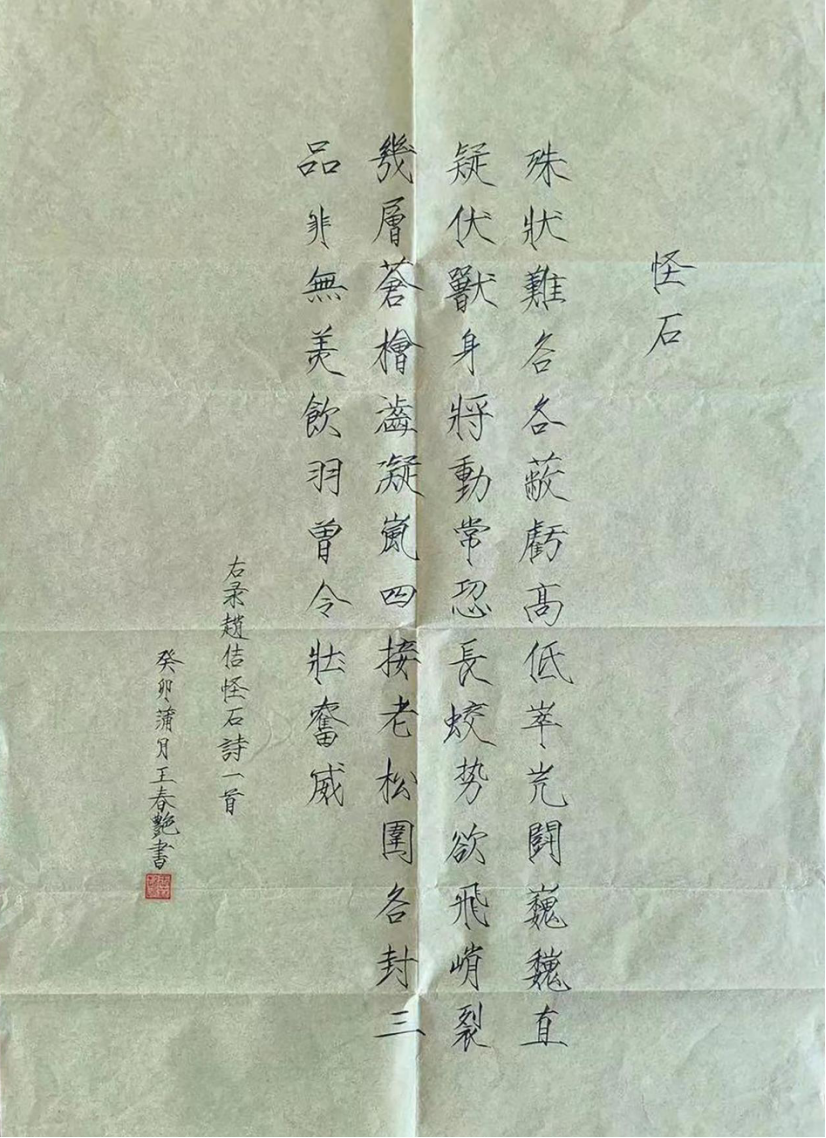 怪石
殊狀難各各蔽虧高低崒屼鬪巍巍直
疑伏獸身將動常恐長蛟势欲飛峭裂
幾層蒼檜齒凝嵐四接老松圍各封三
品非無美飲羽曾令壯奮威
右录趙佶怪石詩一首
癸卯蒲月王春艷書